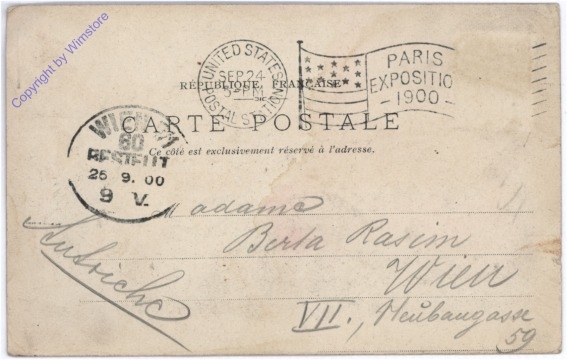 Copyright by Wimstore
UNITED STATES
SEP 24
POSTAL STATION
PARIS
EXPOSITION
-1900-
RÉPUBLIQUE FRANÇAISE
CARTE POSTALE
Ce côté est exclusivement réservé à l'adresse.
WIEN
60
BESTELLT
25 9.00
9 V.
Madame
Berta Rasim
Autriche
Wien
VII., Neubaugasse
59